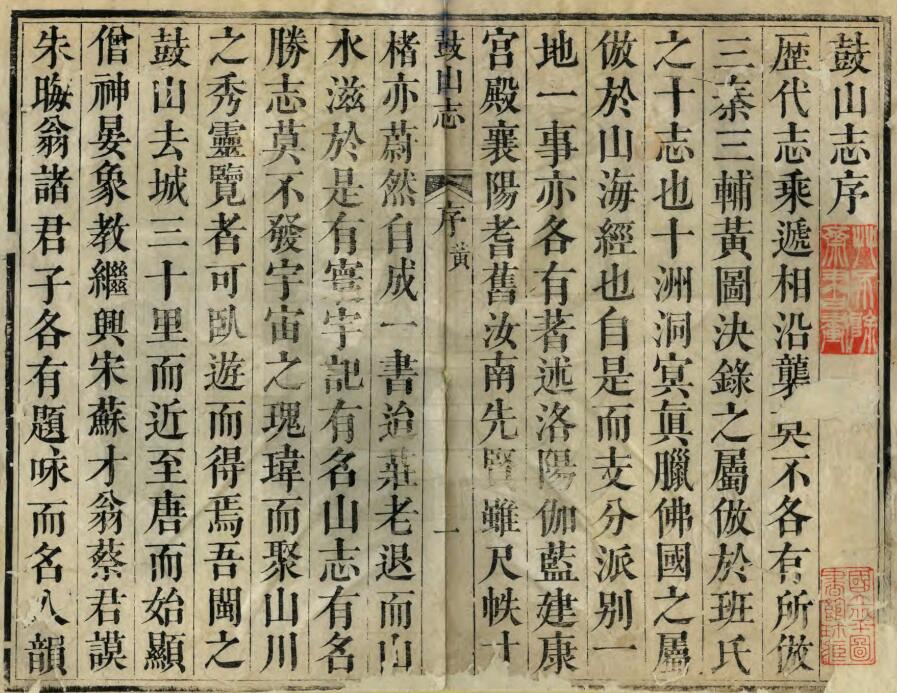 鼓山志序
厯代志乘遞相沿襲莫不各有所倣
三秦三輔黃圖決錄之屬倣於班氏
之十志也十洲洞冥眞臘佛國之屬
倣於山海經也自是而支分派别一
地一事亦各有著述洛陽伽藍建康
宮殿襄陽耆舊汝南先賢雖尺帙寸
鼓山志 序 黃 一
楮亦蔚然自成一書迨莊老退而山
水滋於是有寰宇記有名山志有名
勝志莫不發宇宙之瑰瑋而聚山川
之秀靈覽者可臥遊而得焉吾閩之
鼓山去城三十里而近至唐而始顯
僧神晏象教繼興宋蘇才翁蔡君謨
朱晦翁諸君子各有題咏而名人韻